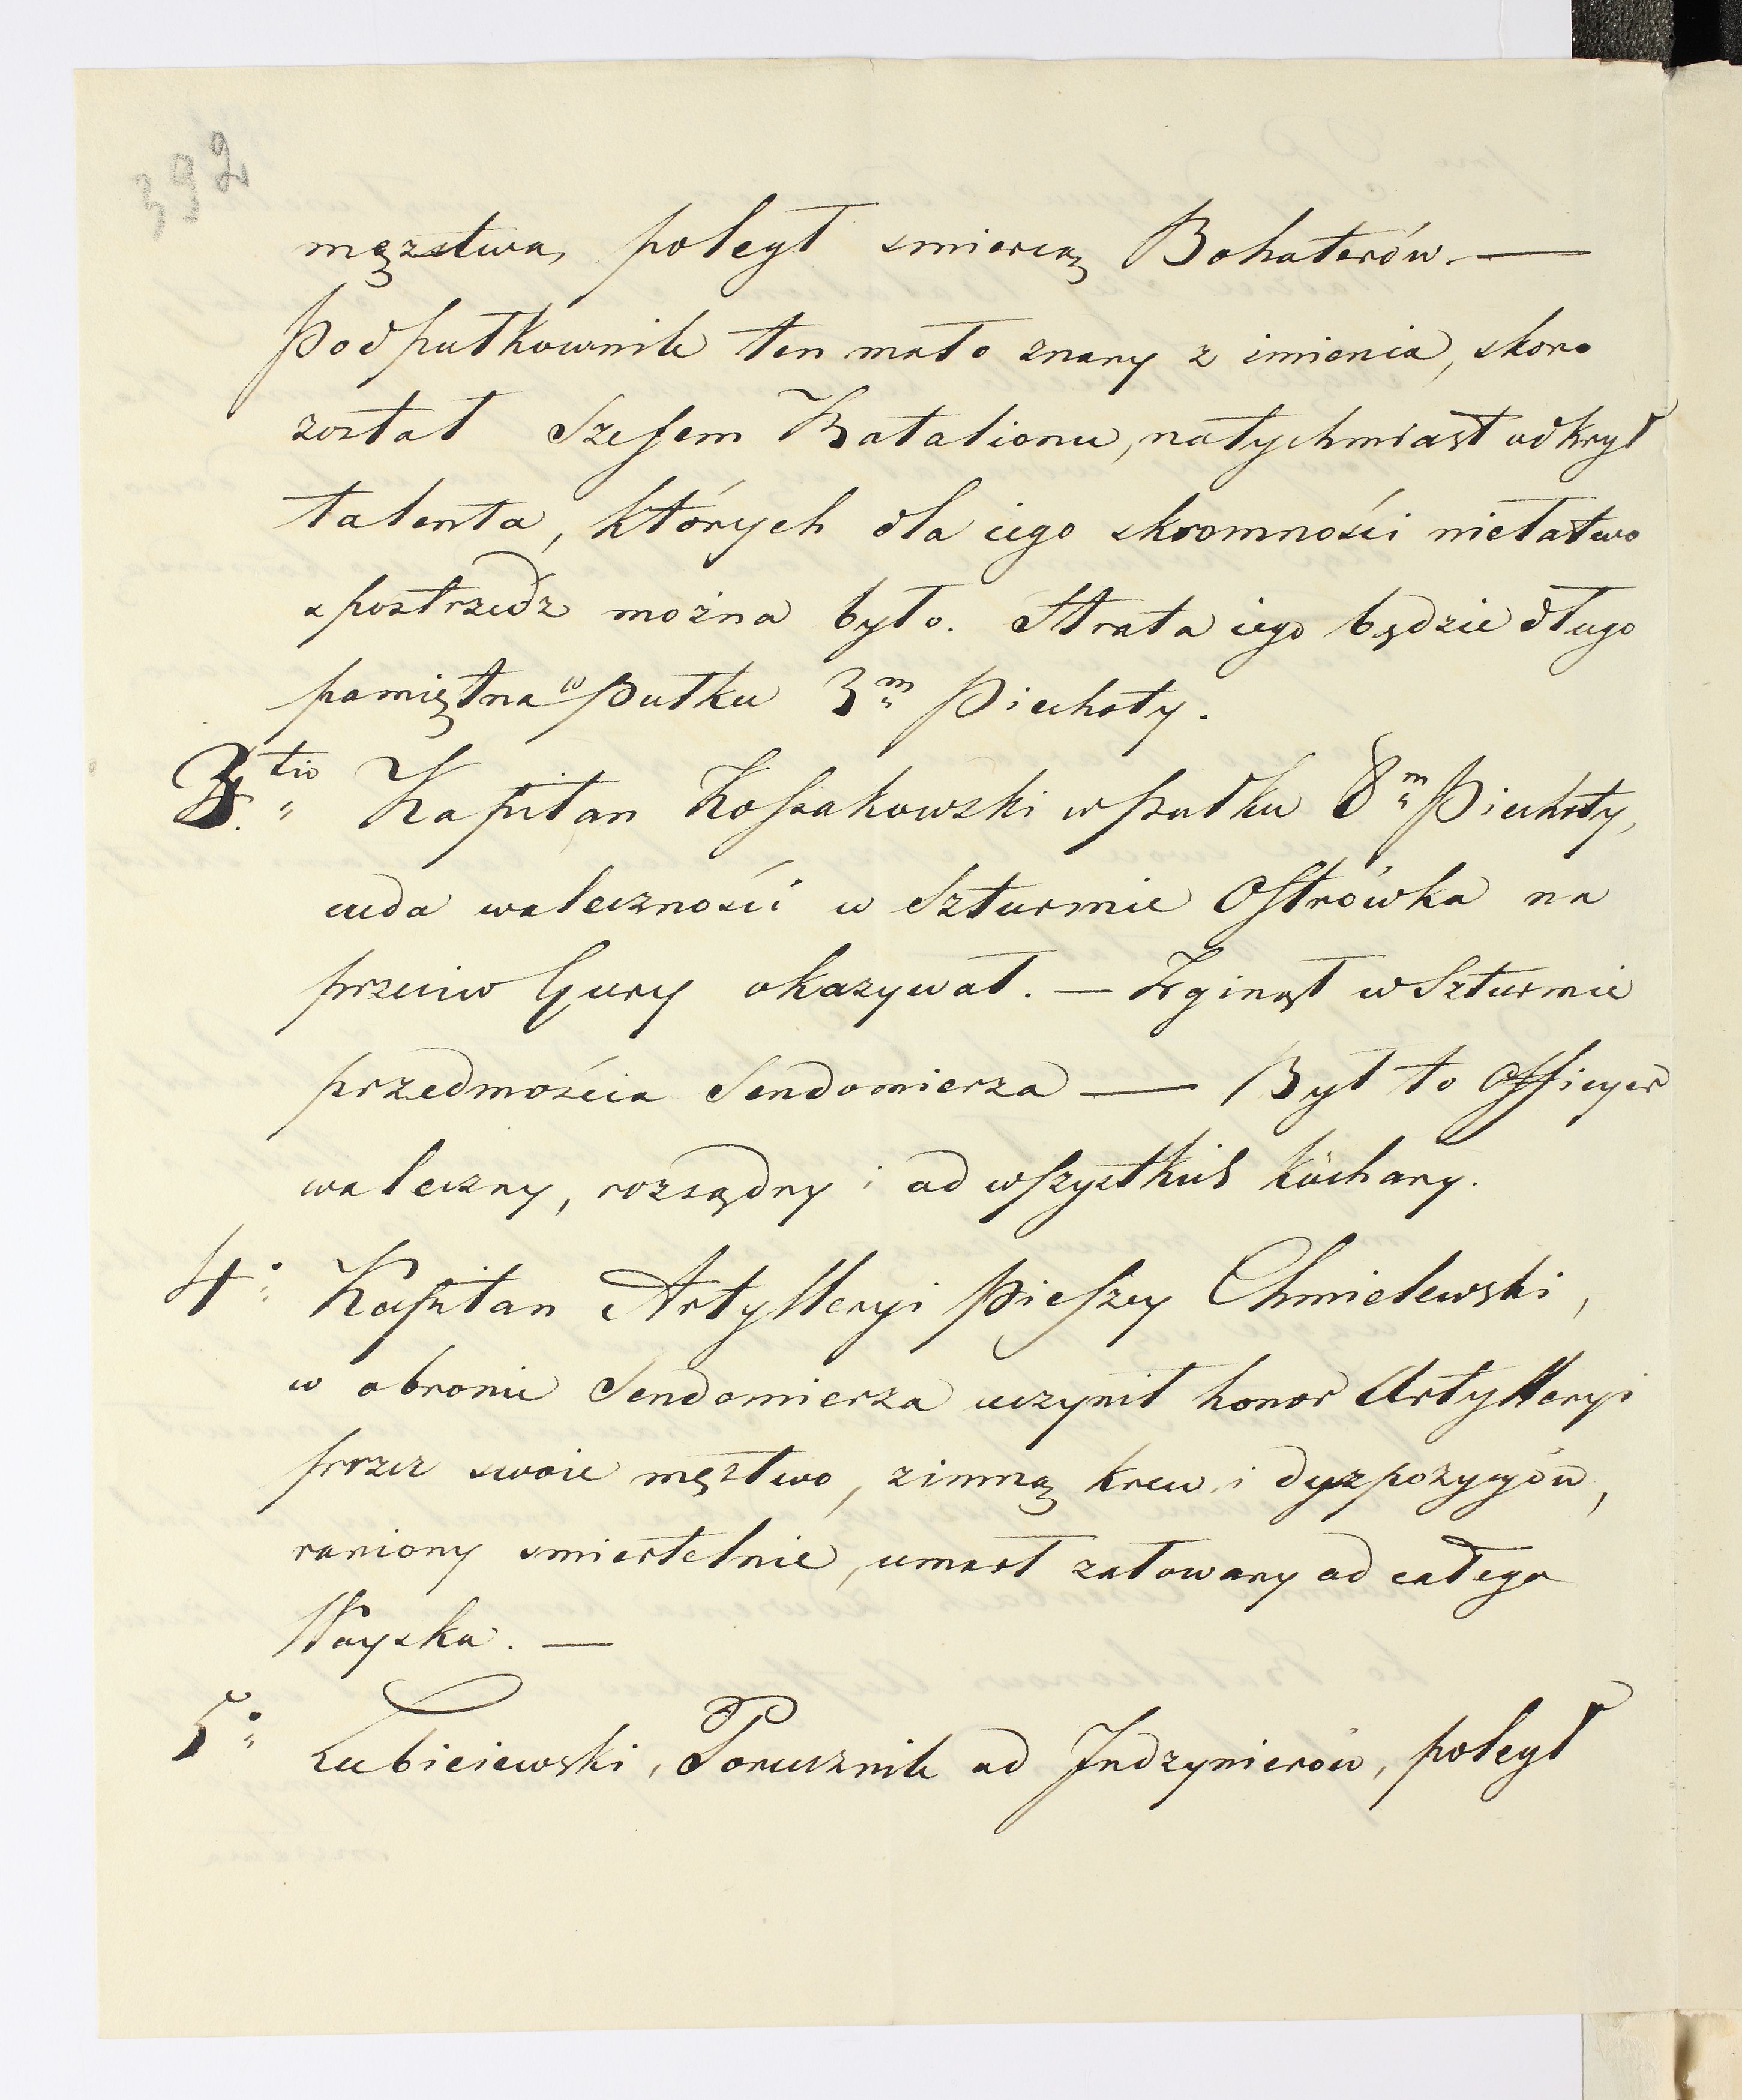 392
męzstwa, poległ smiercią Bohaterów. —
Podpułkownik ten mało znany z imienia, skoro
został Szefem Batalionu, natychmiast odkrył
talenta, których dla iego skromności niełatwo
spostrzedz można było. Strata iego będzie długo
pamiętna w Pułku 3m Piechoty.
3tio Kapitan Kossakowski w pułku 8m Piechoty,
cuda waleczności w Szturmie Ostrówka na
przeciw Gury okazywał. — Zginął w Szturmie
przedmościa Sendomierza — Był to Officyer
waleczny, rozsądny i od wszystkich kochany.
4o Kapitan Artylleryi Pieszey Chmielewski,
w obronie Sendomierza uczynił honor Artylleryi
przez swoie męztwo, zimną krew i dyspozycyów,
raniony smiertelnie, umarł załowany od całego
Woyska. —
5o Łubieiewski, Porucznik od Indzynierów, poległ